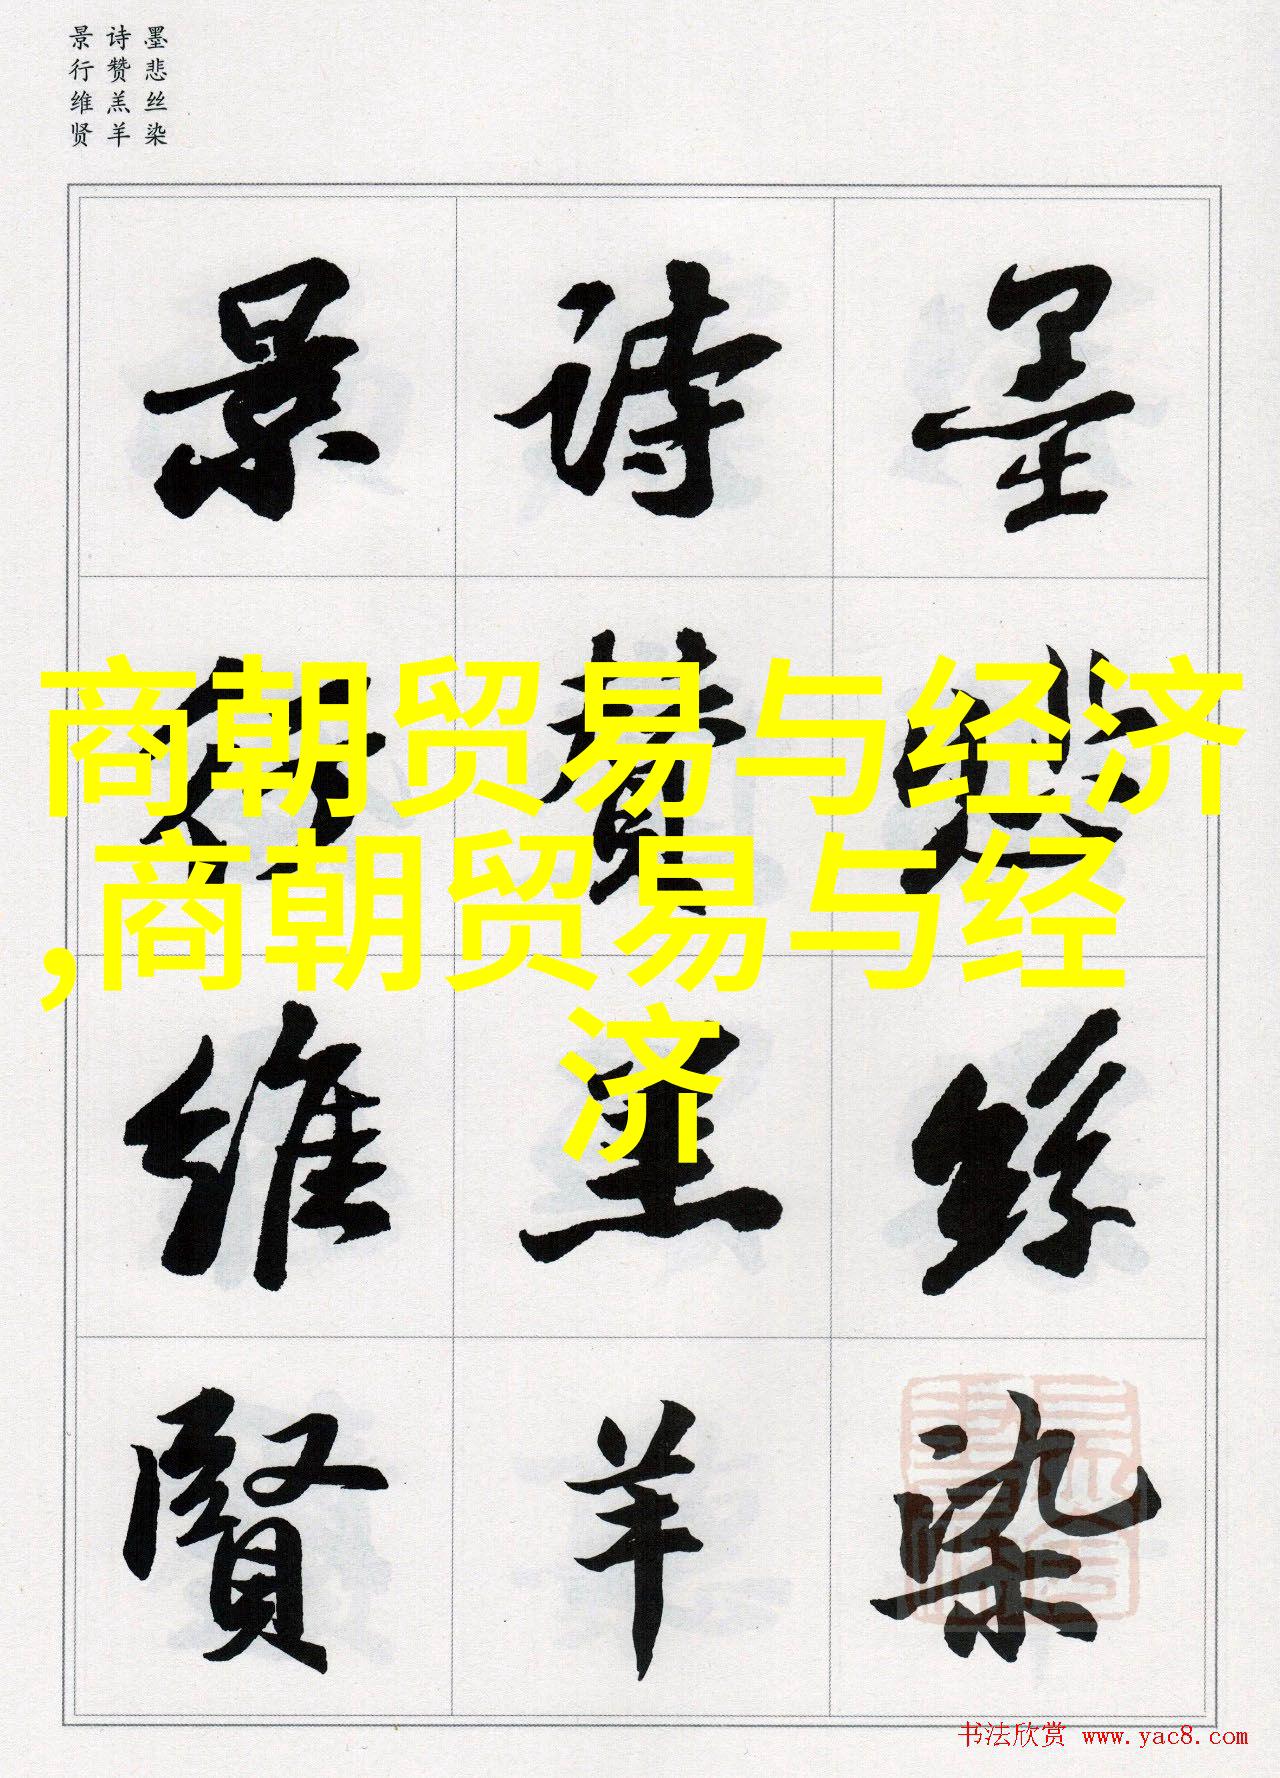 墨悲丝染
诗赞羔羊
景行维贤
墨悲絲染
詩贊羔羊
景行維賢
商朝贸易与经济
,商朝贸易与经
济
书法欣赏 www.yac8.com